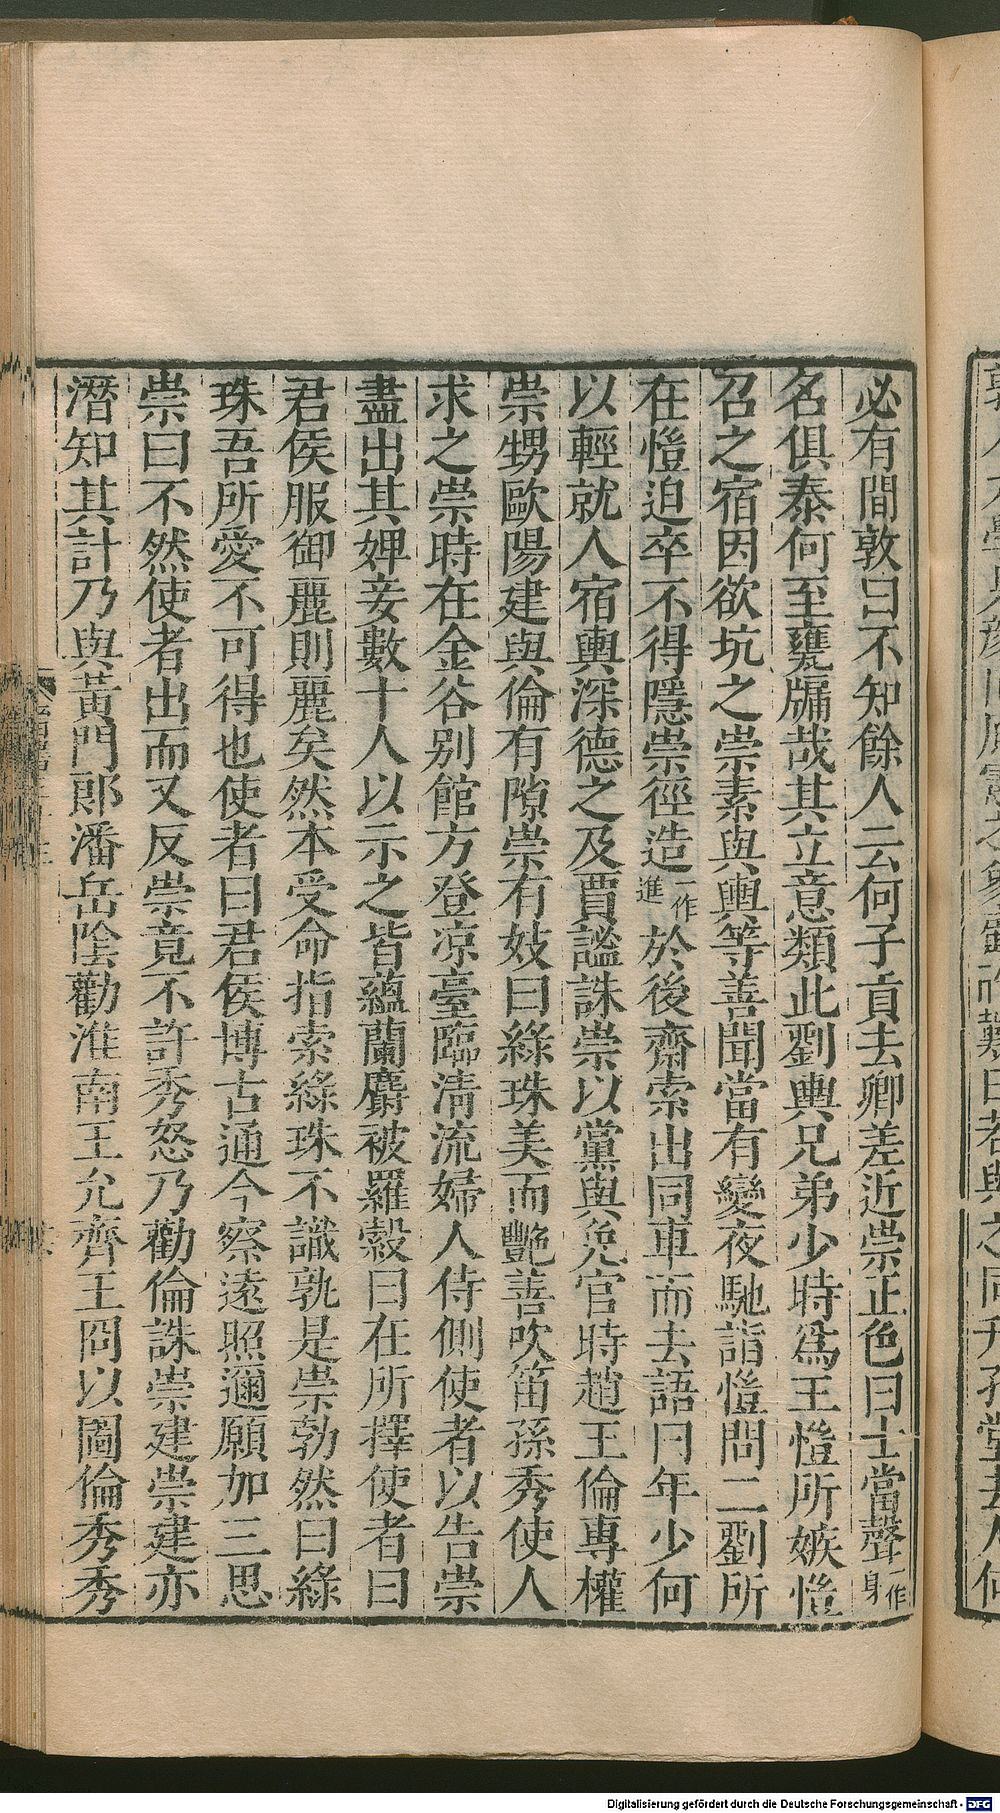 必有間敦曰不知餘人云何子貢去卿差近崇正色曰士當聲一作身
名俱泰何至甕牖哉其立意類此劉輿兄弟少時爲王愷所嫉愷
召之宿因欲坑之崇素與輿等善聞當有變夜馳詣愷問二劉所
在愷迫卒不得隱崇徑造一作進於後齋索出同車而去語曰年少何
以輕就人宿輿深德之及賈謐誅崇以黨與免官時趙王倫專權
崇甥歐陽建與倫有隙崇有妓曰綠珠美而艷善吹笛孫秀使人
求之崇時在金谷別館方登凉臺臨清流婦人侍側使者以告崇
盡出其婢妾數十人以示之皆蘊蘭麝被羅縠曰在所擇使者曰
君侯服御麗則麗矣然本受命指索綠珠不識孰是崇勃然曰綠
珠吾所愛不可得也使者曰君侯博古通今察遠照邇願加三思
崇曰不然使者出而又反崇竟不許秀怒乃勸倫誅崇建崇建亦
潛知其計乃與黃門郎潘岳陰勸淮南王允齊王冏以圖倫秀秀
Digitalisierung gefördert durch die Deutsche Forschungsgemeinschaft - DFG